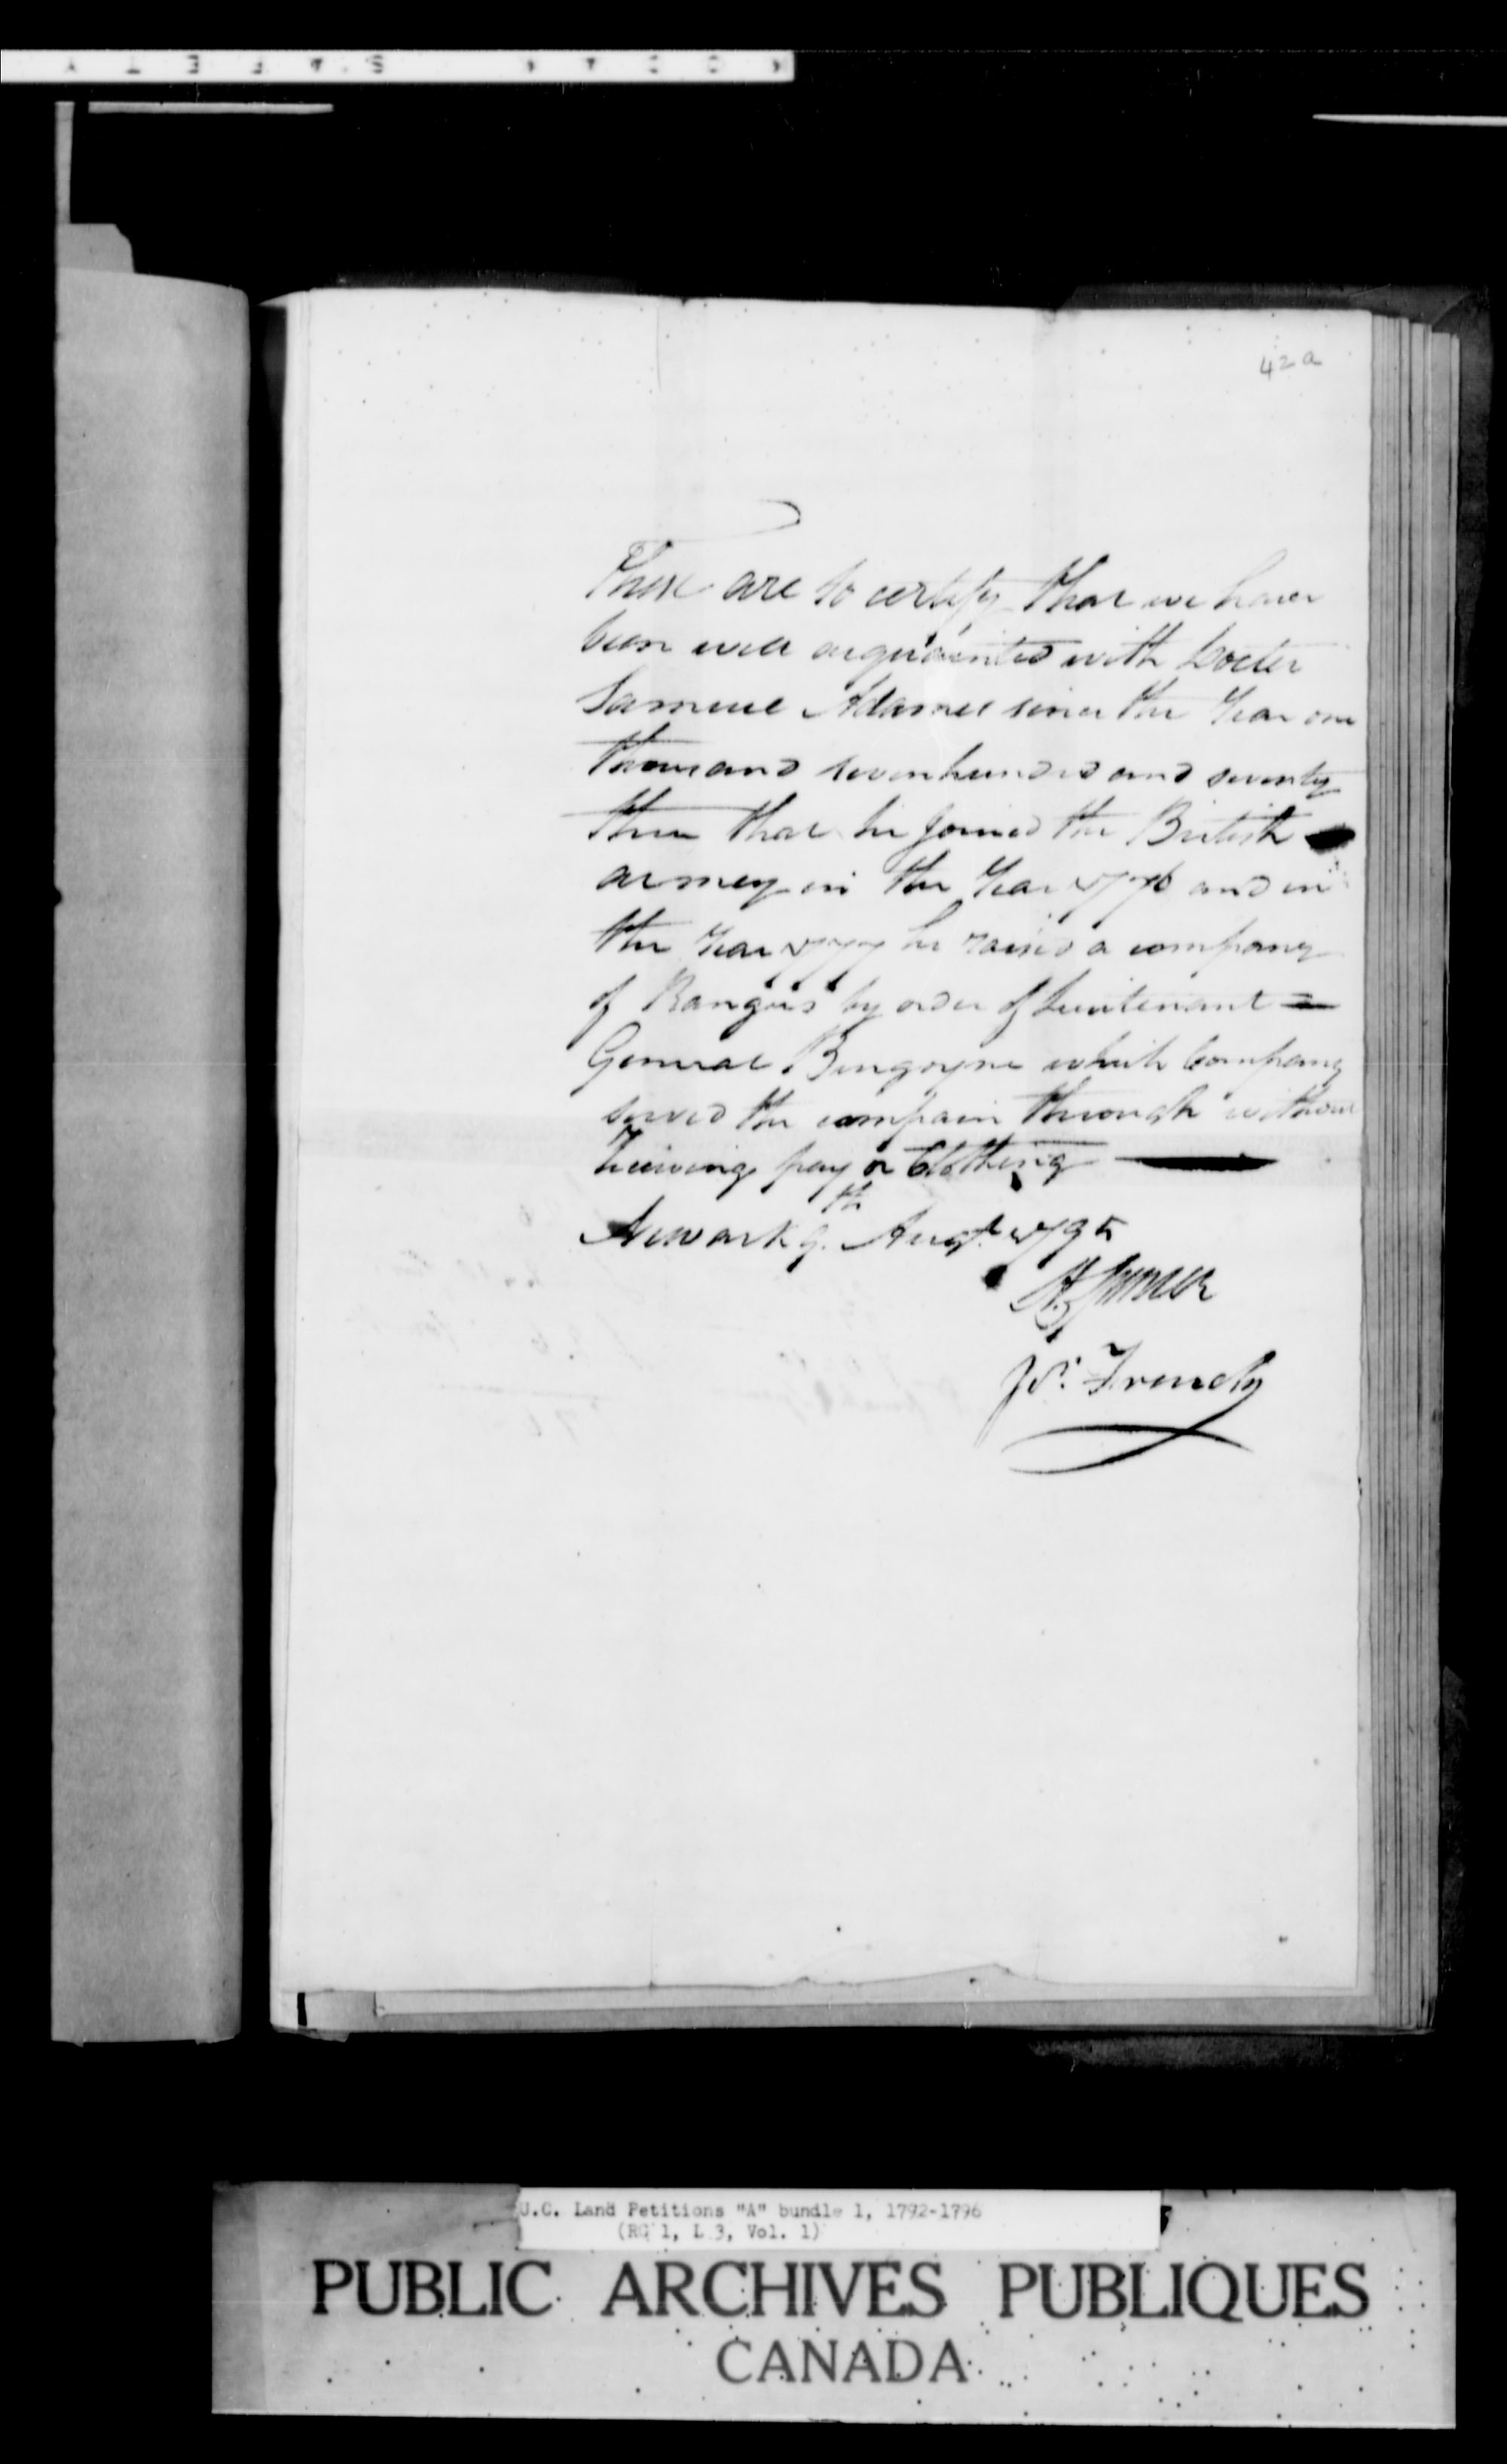 42a
These are to certify that we have
been well acquainted with Docter
Samuel Adames since the Year one
thousand sevenhundred and seventy
three that he joined the British
armey in the Year 1776 and in
the Year 1777 he raised a company
of Rangers by order of Lieutenant
General Burgoyne which Company
served the campain through without
receiving pay or Clothing
Newark 9th Augt. 1795
Js. French
U.C. Land Petitions "A" bundle 1, 1792-1796
(RG 1, L 3, Vol. 1)
PUBLIC ARCHIVES PUBLIQUES
CANADA